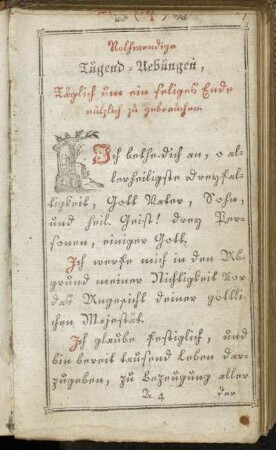 Nothwendige
Tugend-Uebungen,
Täglich um ein seliges Ende
nützlich zu gebrauchen
Ich bethe dich an, o al-
lerheiligste Dreyfal-
tigkeit, Gott Vater, Sohn,
und heil. Geist! drey Per-
sonen, einiger Gott.
Ich werfe mich in den Ab-
grund meiner Nichtigkeit vor
das Angesicht deiner göttli-
chen Majestät.
Ich glaube festiglich, und
bin bereit tausend Leben dar-
zugeben, zu Bezeugung aller
A 4
der